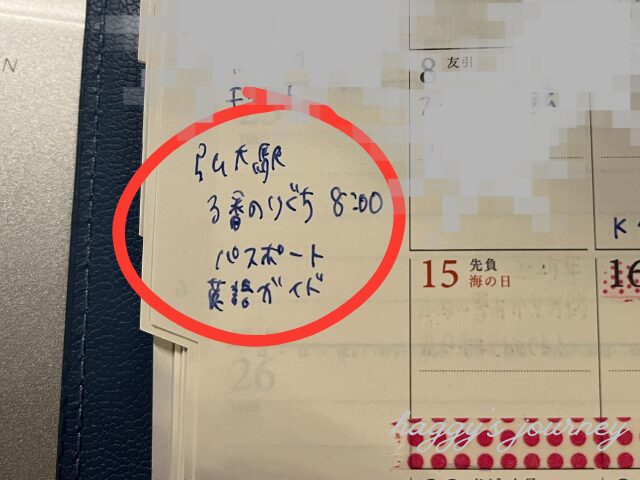 N
8 友引
弘大駅
3番のりぐち 8:00
パスポート
英語ガイド
K
15 先負
海の日
16
26
haggy's journey